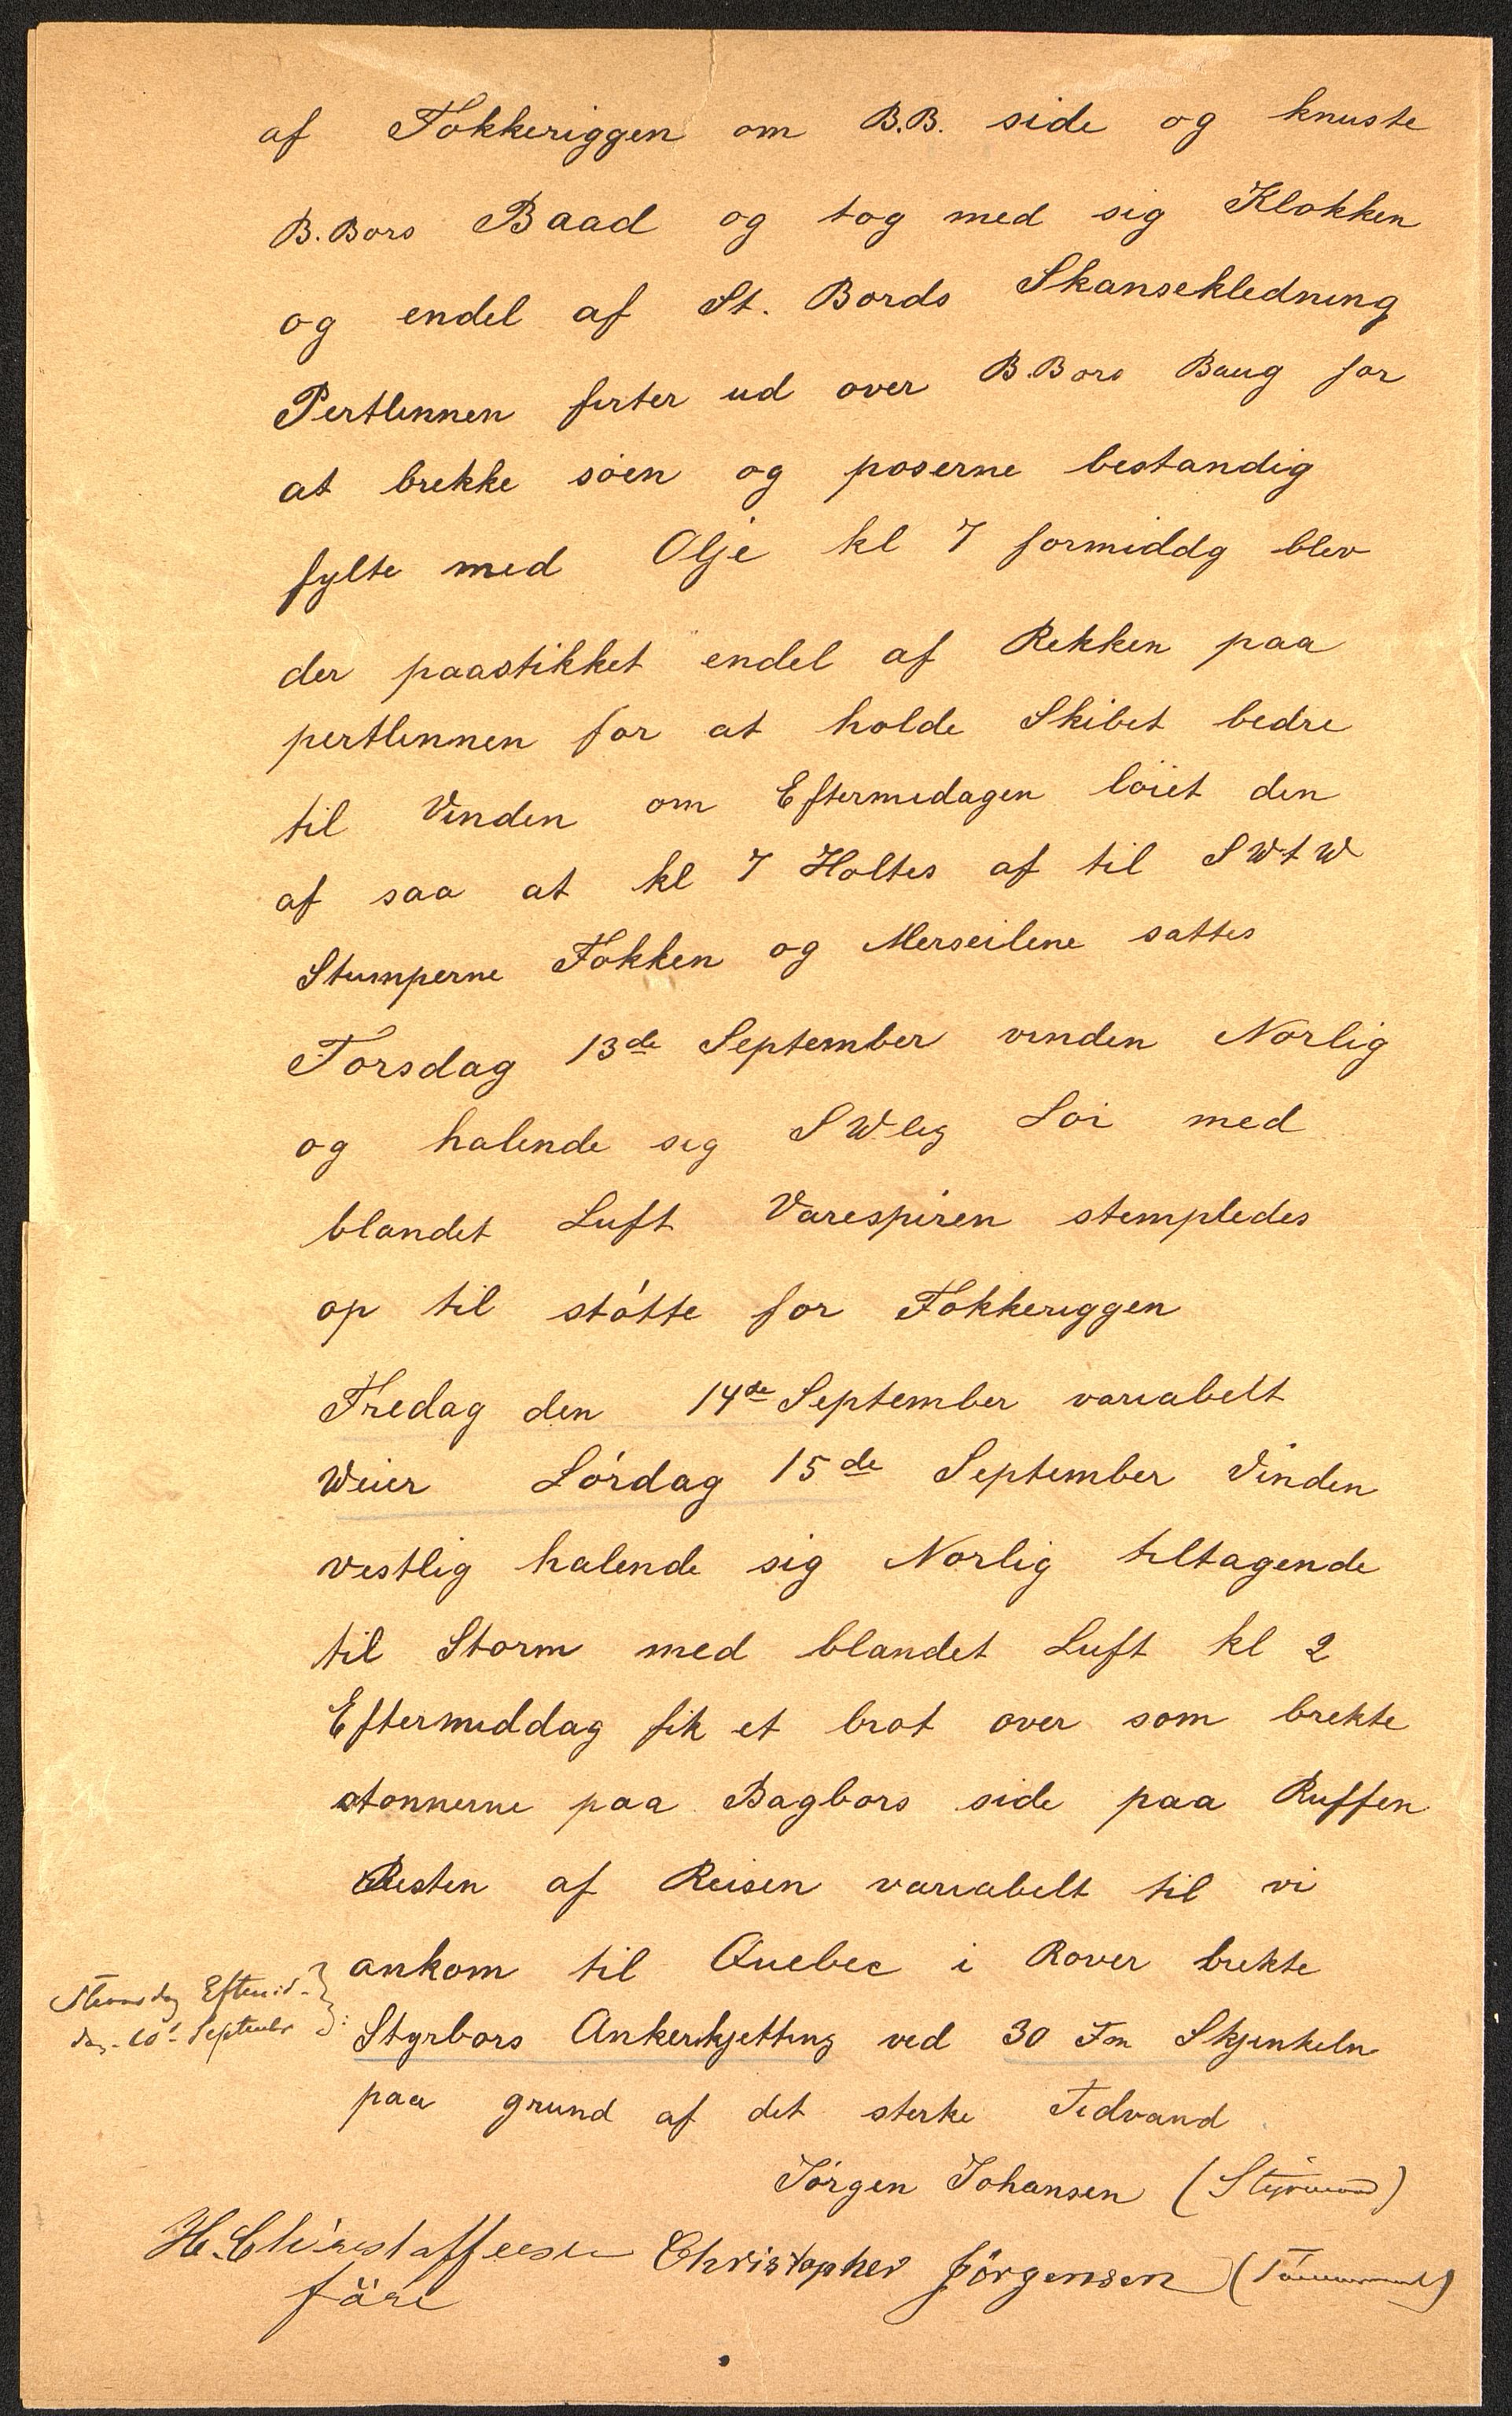 af Fokkeriggen om B.B. side og knuste
B.Bors Baad og tog med sig Klokken
og endel af St. Bords Skansekledning
Pertlinnen firter ud over B.Bors Baug for
at brekke søen og poserne bestandig
fylte med Olje kl 7 formiddg blev
der paastikket endel af Rekken paa
pertlinnen for at holde Skibet bedre
til Vinden om Eftermidagen löiet den
af saa at kl 7 Holtes af til SWtW
Stumperne Fokken og Merseilene sattes
Torsdag 13de September vinden Norlig
og halende sig SWlig Loi med
blandet Luft Varespiren stempledes
op til støtte for Fokkeriggen
Fredag den 14de September variabelt
Weier Lørdag 15de September Vinden
vestlig halende sig Norlig tiltagende
til Storm med blandet Luft kl 2
Eftermiddag fik et brot over som brekte
stonnerne paa Bagbors side paa Ruffen
Resten af Reisen variabelt til vi
ankom til Quebec i Rover brekte
September
Styrbors Ankerkjetting ved 30 Fm Skjenkeln
paa grund af det sterke Tidvand
Jørgen Johansen (Styrmand)
H. Christoffersen Christopher Jörgensen (Tømmermand)